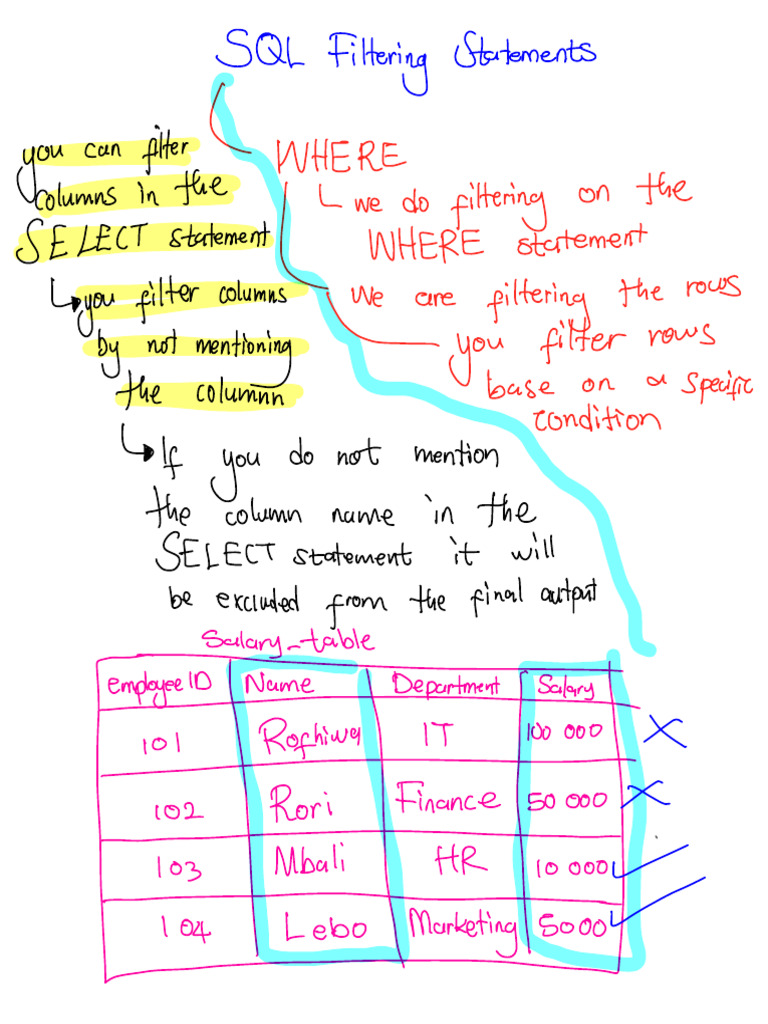 SQL Filtering Statements
you can filter
columns in the
SELECT statement
you filter columns
by not mentioning
the columnn
If you do not mention
the column name in the
SELECT statement it will
be excluded from the final output
WHERE
we do filtering on the
WHERE statement
We are filtering the rows
you filter rows
base on a specific
condition
Salary_table
employee ID Name Department Salary
101 Rofhiwa IT 100 000
102 Rori Finance 50 000
103 Mbali HR 10 000
104 Lebo Marketing 5000